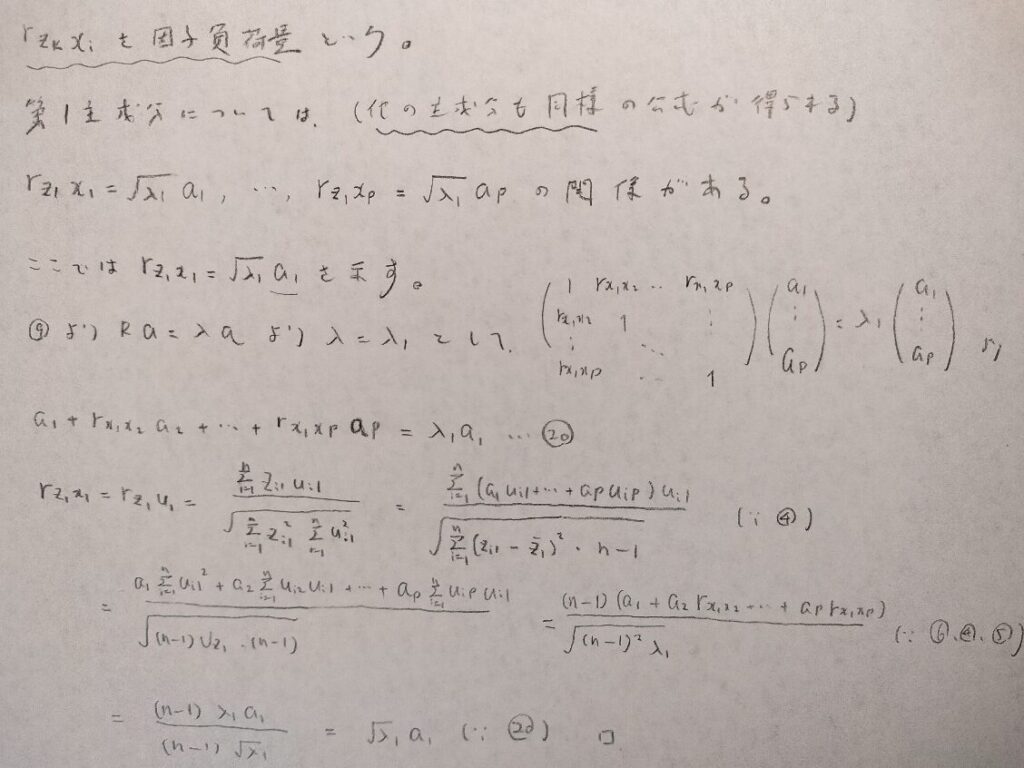 r_{z_k x_i} を因子負荷量という。
第1主成分については、(他の主成分も同様の公式が得られる)
r_{z_1 x_1} = √λ_1 a_1, …, r_{z_1 x_p} = √λ_1 a_p の関係がある。
ここでは r_{z_1 x_1} = √λ_1 a_1 を示す。
⑨より Ra = λa より λ = λ_1 として、 (1 r_{x_1 x_2} ‥ r_{x_1 x_p} ; r_{x_1 x_2} 1 ⋮ ; ⋮ ⋱ ; r_{x_1 x_p} ‥ 1) (a_1 ⋮ a_p) = λ_1 (a_1 ⋮ a_p) より
a_1 + r_{x_1 x_2} a_2 + … + r_{x_1 x_p} a_p = λ_1 a_1 … ⑳
r_{z_1 x_1} = r_{z_1 u_1} = Σ_{i=1}^n z_{i1} u_{i1} / √(Σ_{i=1}^n z_{i1}^2 Σ_{i=1}^n u_{i1}^2) = Σ_{i=1}^n (a_1 u_{i1} + … + a_p u_{ip}) u_{i1} / √(Σ_{i=1}^n (z_{i1} - z̄_1)^2 · n-1) (∵ ④)
= (a_1 Σ_{i=1}^n u_{i1}^2 + a_2 Σ_{i=1}^n u_{i2} u_{i1} + … + a_p Σ_{i=1}^n u_{ip} u_{i1}) / √((n-1) V_{z_1} · (n-1)) = (n-1)(a_1 + a_2 r_{x_1 x_2} + … + a_p r_{x_1 x_p}) / √((n-1)^2 λ_1) (∵ ⑥、④、⑤)
= (n-1) λ_1 a_1 / (n-1) √λ_1 = √λ_1 a_1 (∵ ⑳) □